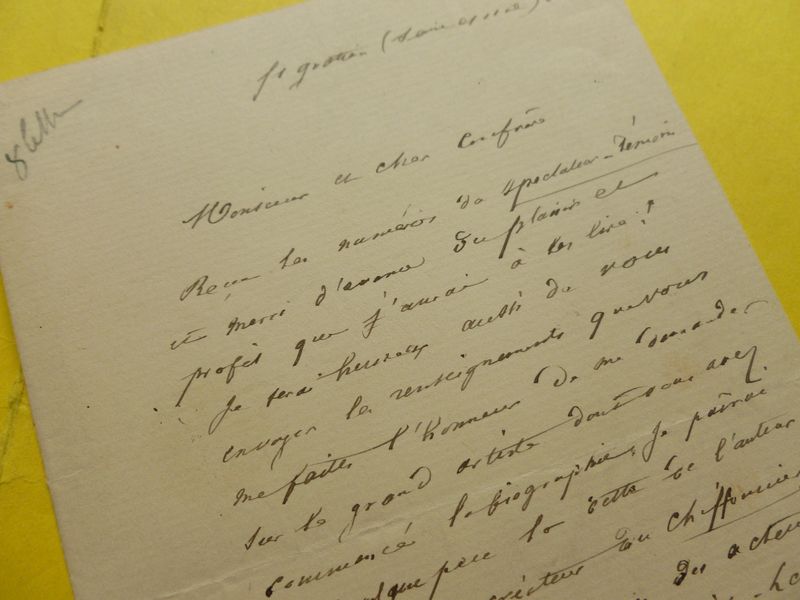 St gratien (Seine et oise)
Monsieur et cher Confrère
Reçu les numéros du Spectateur-Témoin
et merci d'avance du plaisir et
profit que j'aurai à les lire!
Je serai heureux aussi de vous
envoyer les renseignements que vous
me faites l'honneur de me demander
sur le grand artiste dont vous avez
commencé la biographie, je pourrai
quelque peu la dette de l'auteur
du Chiffonnier
des acteurs